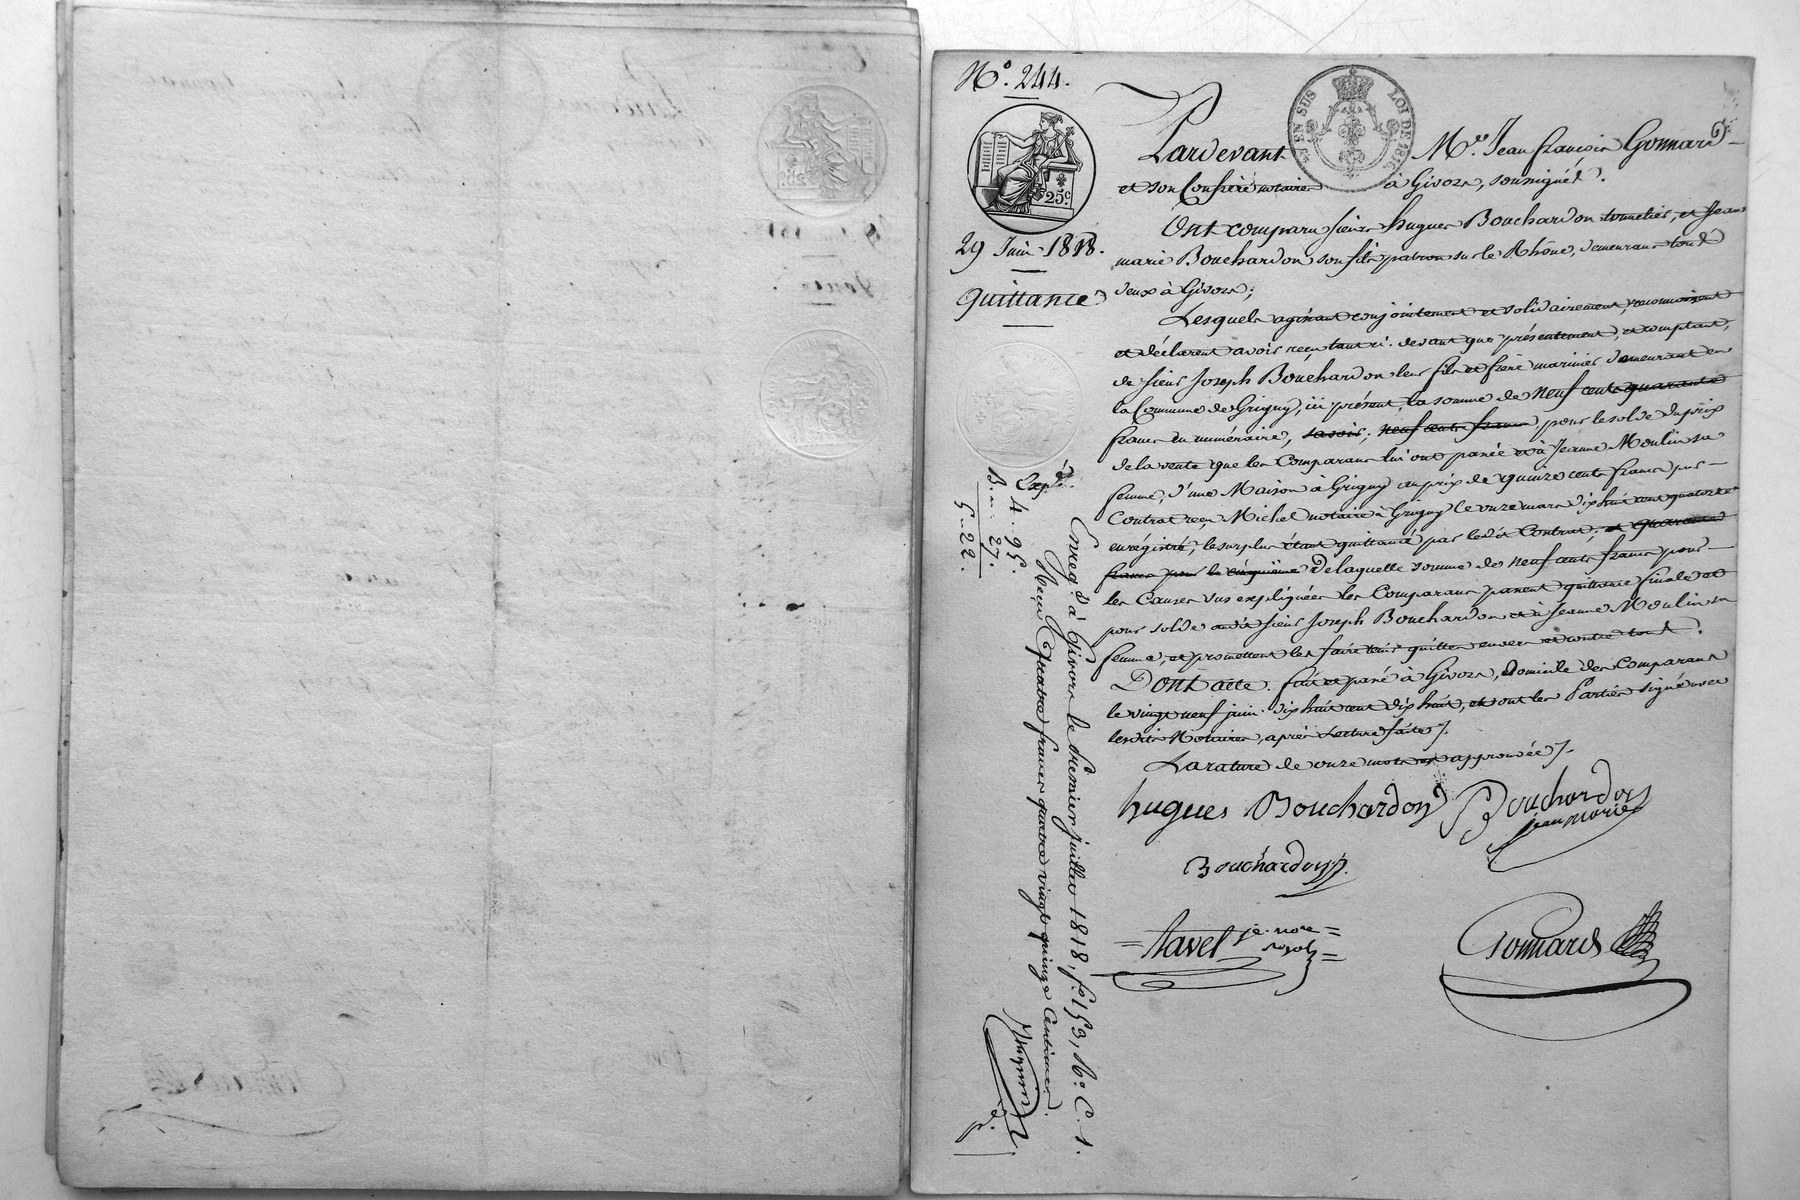 N.° 244.
25.c
29 Juin 1818.
Quittance
EN SUS
LOI DE 1816
Pardevant Me. Jean françois Gonnard
et son Confrère notaires à Givors, soussignés.
Ont comparu sieurs hugues Bouchardon tonnelier, et Jean
marie Bouchardon son fils patron sur le Rhône, demeurans tous
deux à Givors;
Lesquels agissant conjointement et solidairement, reconnoissent
et déclarent avoir reçu tant ci-devant que présentement, et comptant,
de sieur Joseph Bouchardon leur fils et frère marinier demeurant en
la Commune de Grigny, ici présent, la somme de neuf cents quarante
francs en numéraire, savoir; neuf cents francs, pour le solde du prix
de la vente que les Comparans lui ont passée et à Jeanne Moulin sa
femme, d'une Maison à Grigny au prix de quinze cents francs par
Contrat reçu Michel notaire à Grigny le onze mars dix huit cent quatorze
enregistré, le surplus étant quittancé par ledit Contrat; et quarante
francs pour le cinquième de laquelle somme de neuf cents francs pour
les Causes sus expliquées les Comparans passent quittance finale et
pour solde audit sieur Joseph Bouchardon et à Jeanne Moulin sa
femme, et promettent les faire tenir quittes envers et contre tous.
Dont acte. fait et passé à Givors, domicile des Comparans
le vingt neuf juin dix huit cent dix huit, et ont les Parties signé avec
lesdits Notaires, après Lecture faite.
La rature de onze mots est approuvée.
hugues Bouchardon Bouchardon
jean marie
Bouchardon
Tavel
Gonnard
Exp.
4. 95.
27.
5. 22.
Enreg.é à Givors le premier juillet 1818, f.° 153, R.° C. 1.
Reçu Quatre francs quatre vingt quinze Centimes.